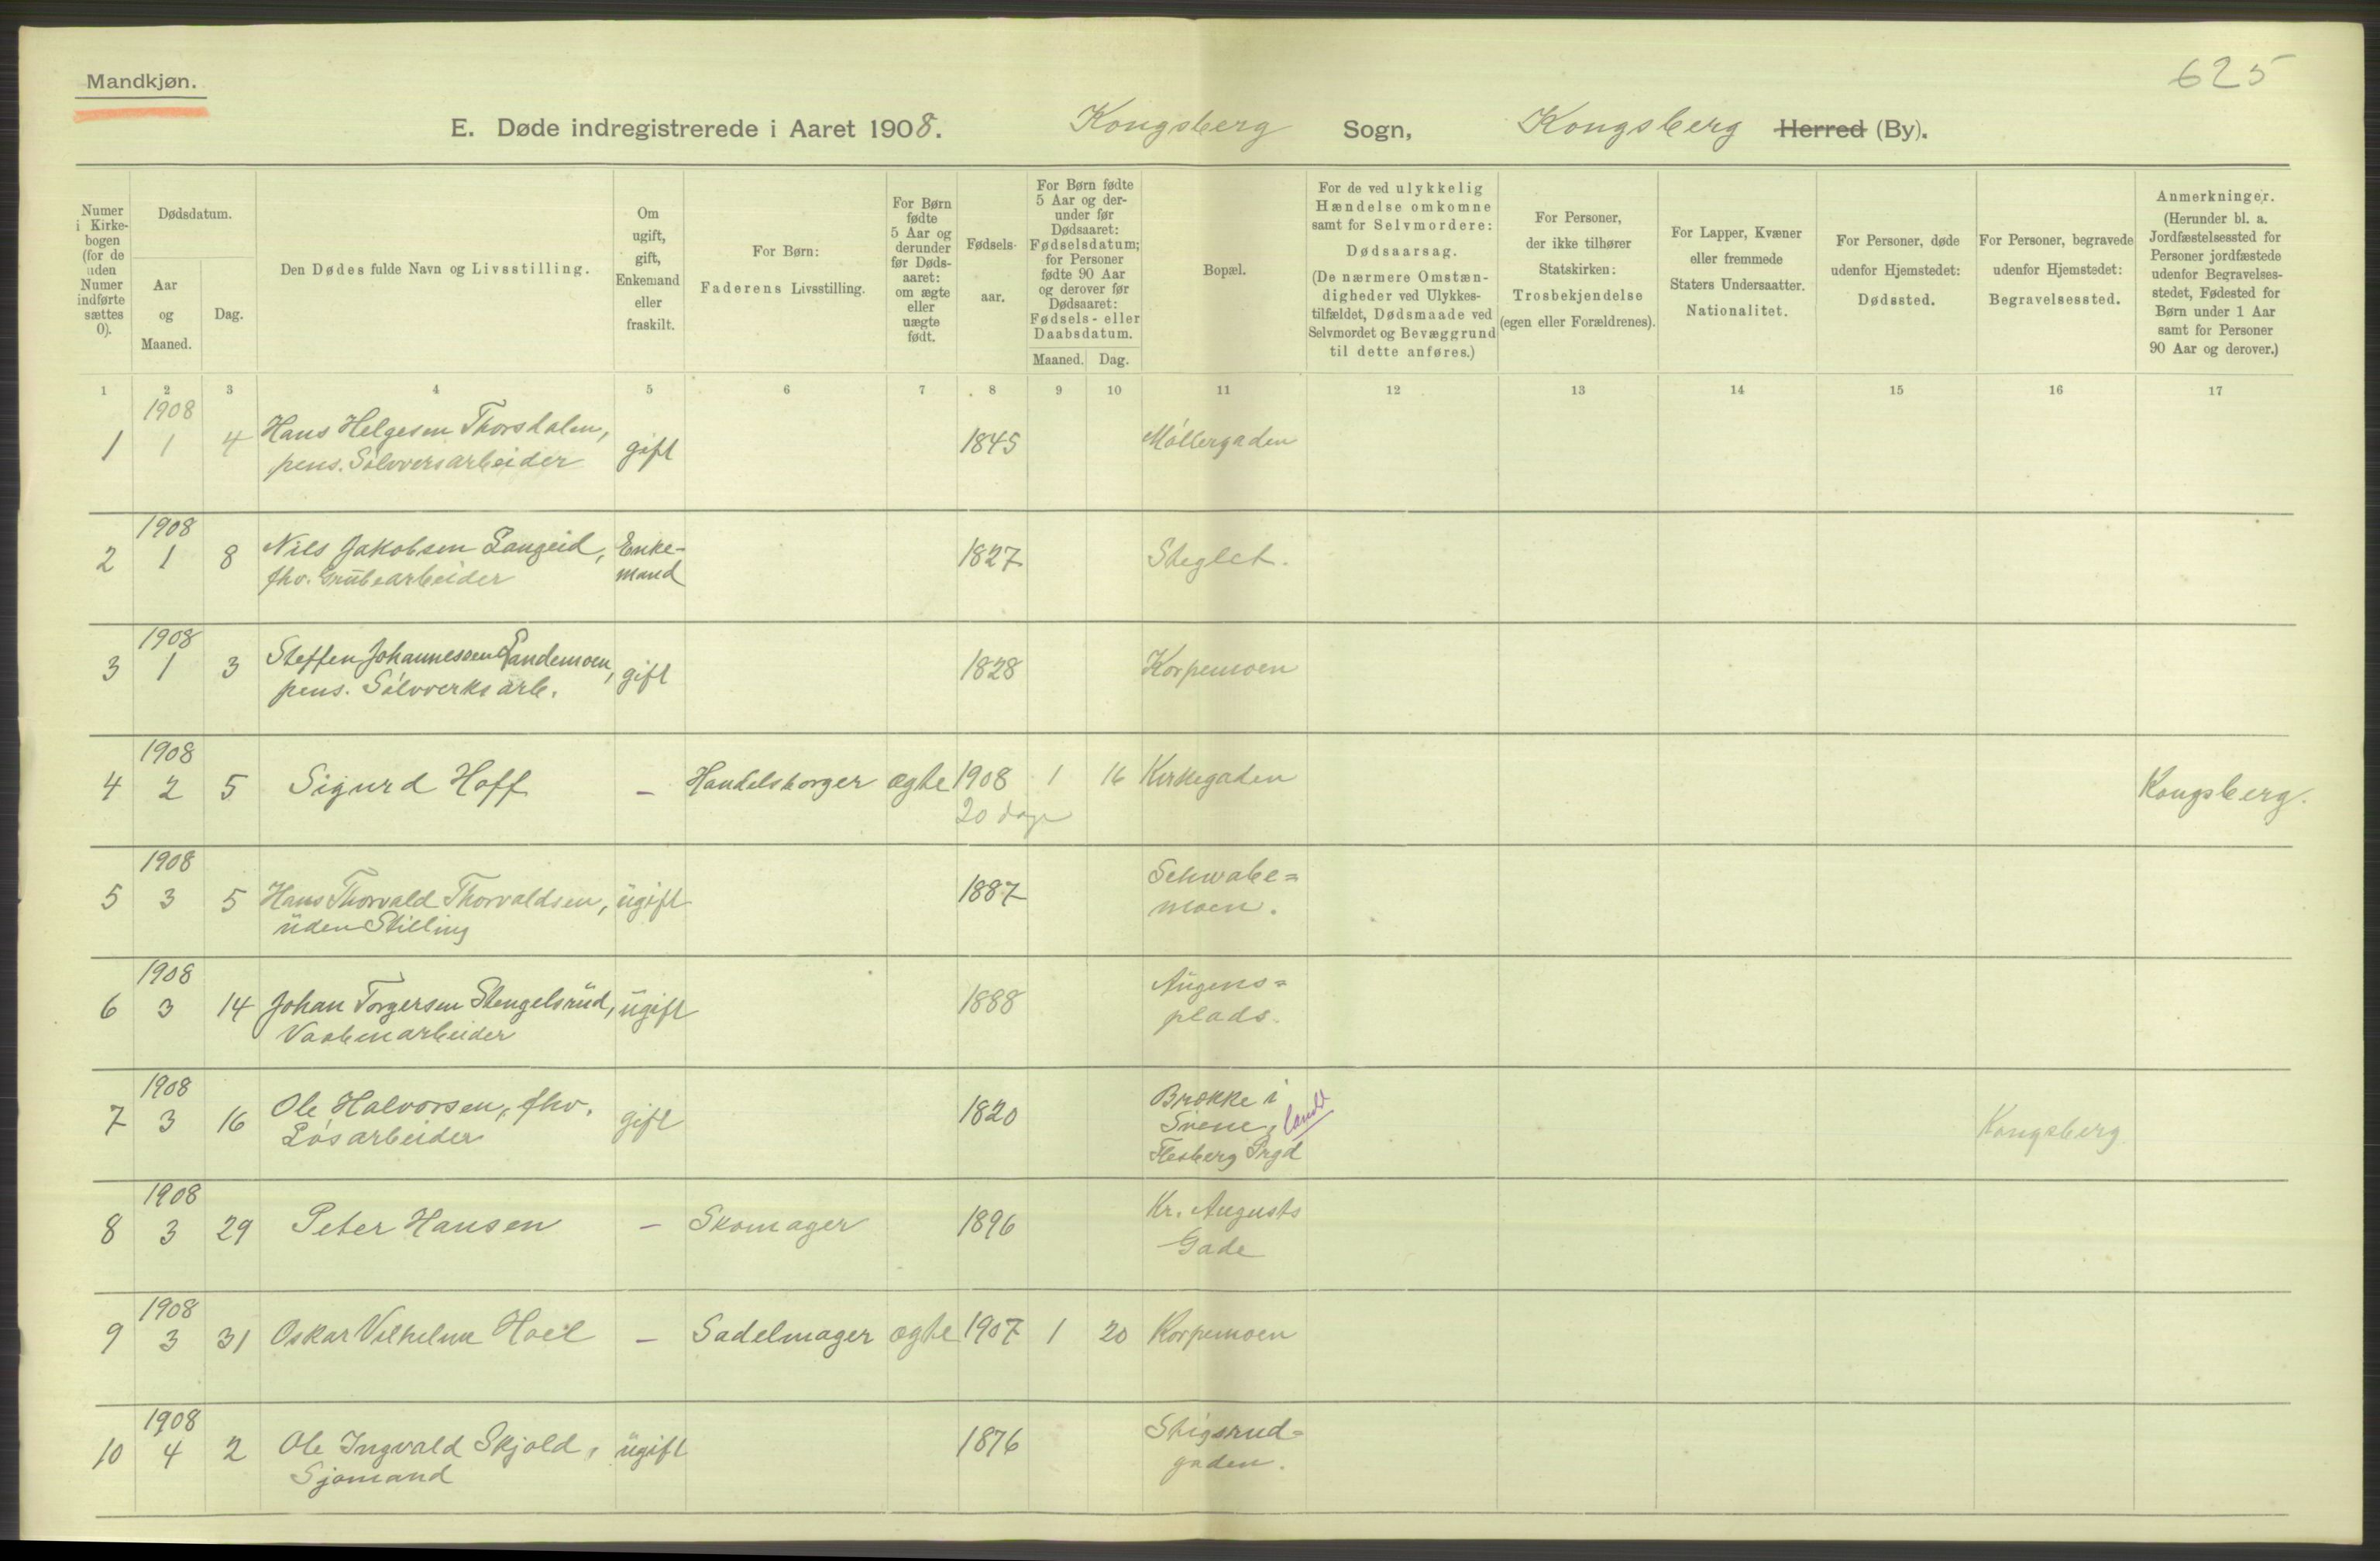 Mandkjøn.
625
E. Døde indregistrerede i Aaret 1908. Kongsberg Sogn, Kongsberg Herred (By).
Numer
i Kirke-
bogen
(for de
uden
Numer
indførte
sættes
0).
Dødsdatum.
Aar
og
Maaned.
Dag.
Den Dødes fulde Navn og Livsstilling.
Om
ugift,
gift,
Enkemand
eller
fraskilt.
For Børn:
Faderens Livsstilling.
For Børn
fødte
5 Aar og
derunder
før Døds-
aaret:
om ægte
eller
uægte
født.
Fødsels-
aar.
For Børn fødte
5 Aar og der-
under før
Dødsaaret:
Fødselsdatum;
for Personer
fødte 90 Aar
og derover før
Dødsaaret:
Fødsels- eller
Daabsdatum.
Maaned. Dag.
Bopæl.
For de ved ulykkelig
Hændelse omkomne
samt for Selvmordere:
Dødsaarsag.
(De nærmere Omstæn-
digheder ved Ulykkes-
tilfældet, Dødsmaade ved
Selvmordet og Bevæggrund
til dette anføres.)
For Personer,
der ikke tilhører
Statskirken:
Trosbekjendelse
(egen eller Forældrenes).
For Lapper, Kvæner
eller fremmede
Staters Undersaatter.
Nationalitet.
For Personer, døde
udenfor Hjemstedet:
Dødssted.
For Personer, begravede
udenfor Hjemstedet:
Begravelsessted.
Anmerkninger.
(Herunder bl. a.
Jordfæstelsessted for
Personer jordfæstede
udenfor Begravelses-
stedet, Fødested for
Børn under 1 Aar
samt for Personer
90 Aar og derover.)
1 2 3 4 5 6 7 8 9 10 11 12 13 14 15 16 17
1908
1 1 4 Hans Helgesen Thorsdalen, gift 1845 Møllergaden
pens. Sølvversarbeider
1908
2 1 8 Nils Jakobsen Langeid, Enke- 1827 Steglet.
fhv. Grubearbeider mand
1908
3 1 3 Steffen Johannessen Sandemoen, gift 1828 Korpemoen
pens. Sølvverks arb.
1908
4 2 5 Sigurd Hoff - Handelsborger ægte 1908 1 16 Kirkegaden Kongsberg.
20 dage
1908
5 3 5 Hans Thorvald Thorvaldsen, ugift 1887 Schwabe=
uden Stilling moen.
1908
6 3 14 Johan Torgersen Stengelsrud, ugift 1888 Augens=
Vaabenarbeider plads.
1908
7 3 16 Ole Halvorsen, fhv. gift 1820 Brække i
Løsarbeider Svene, landt Kongsberg
Flesberg Prgd
1908
8 3 29 Peter Hansen - Skomager 1896 Kr. Augusts
Gade
1908
9 3 31 Oskar Vilhelm Hoel - Sadelmager ægte 1907 1 20 Korpemoen
1908
10 4 2 Ole Ingvald Skjold, ugift 1876 Stigsrud=
Sjømand gaden.